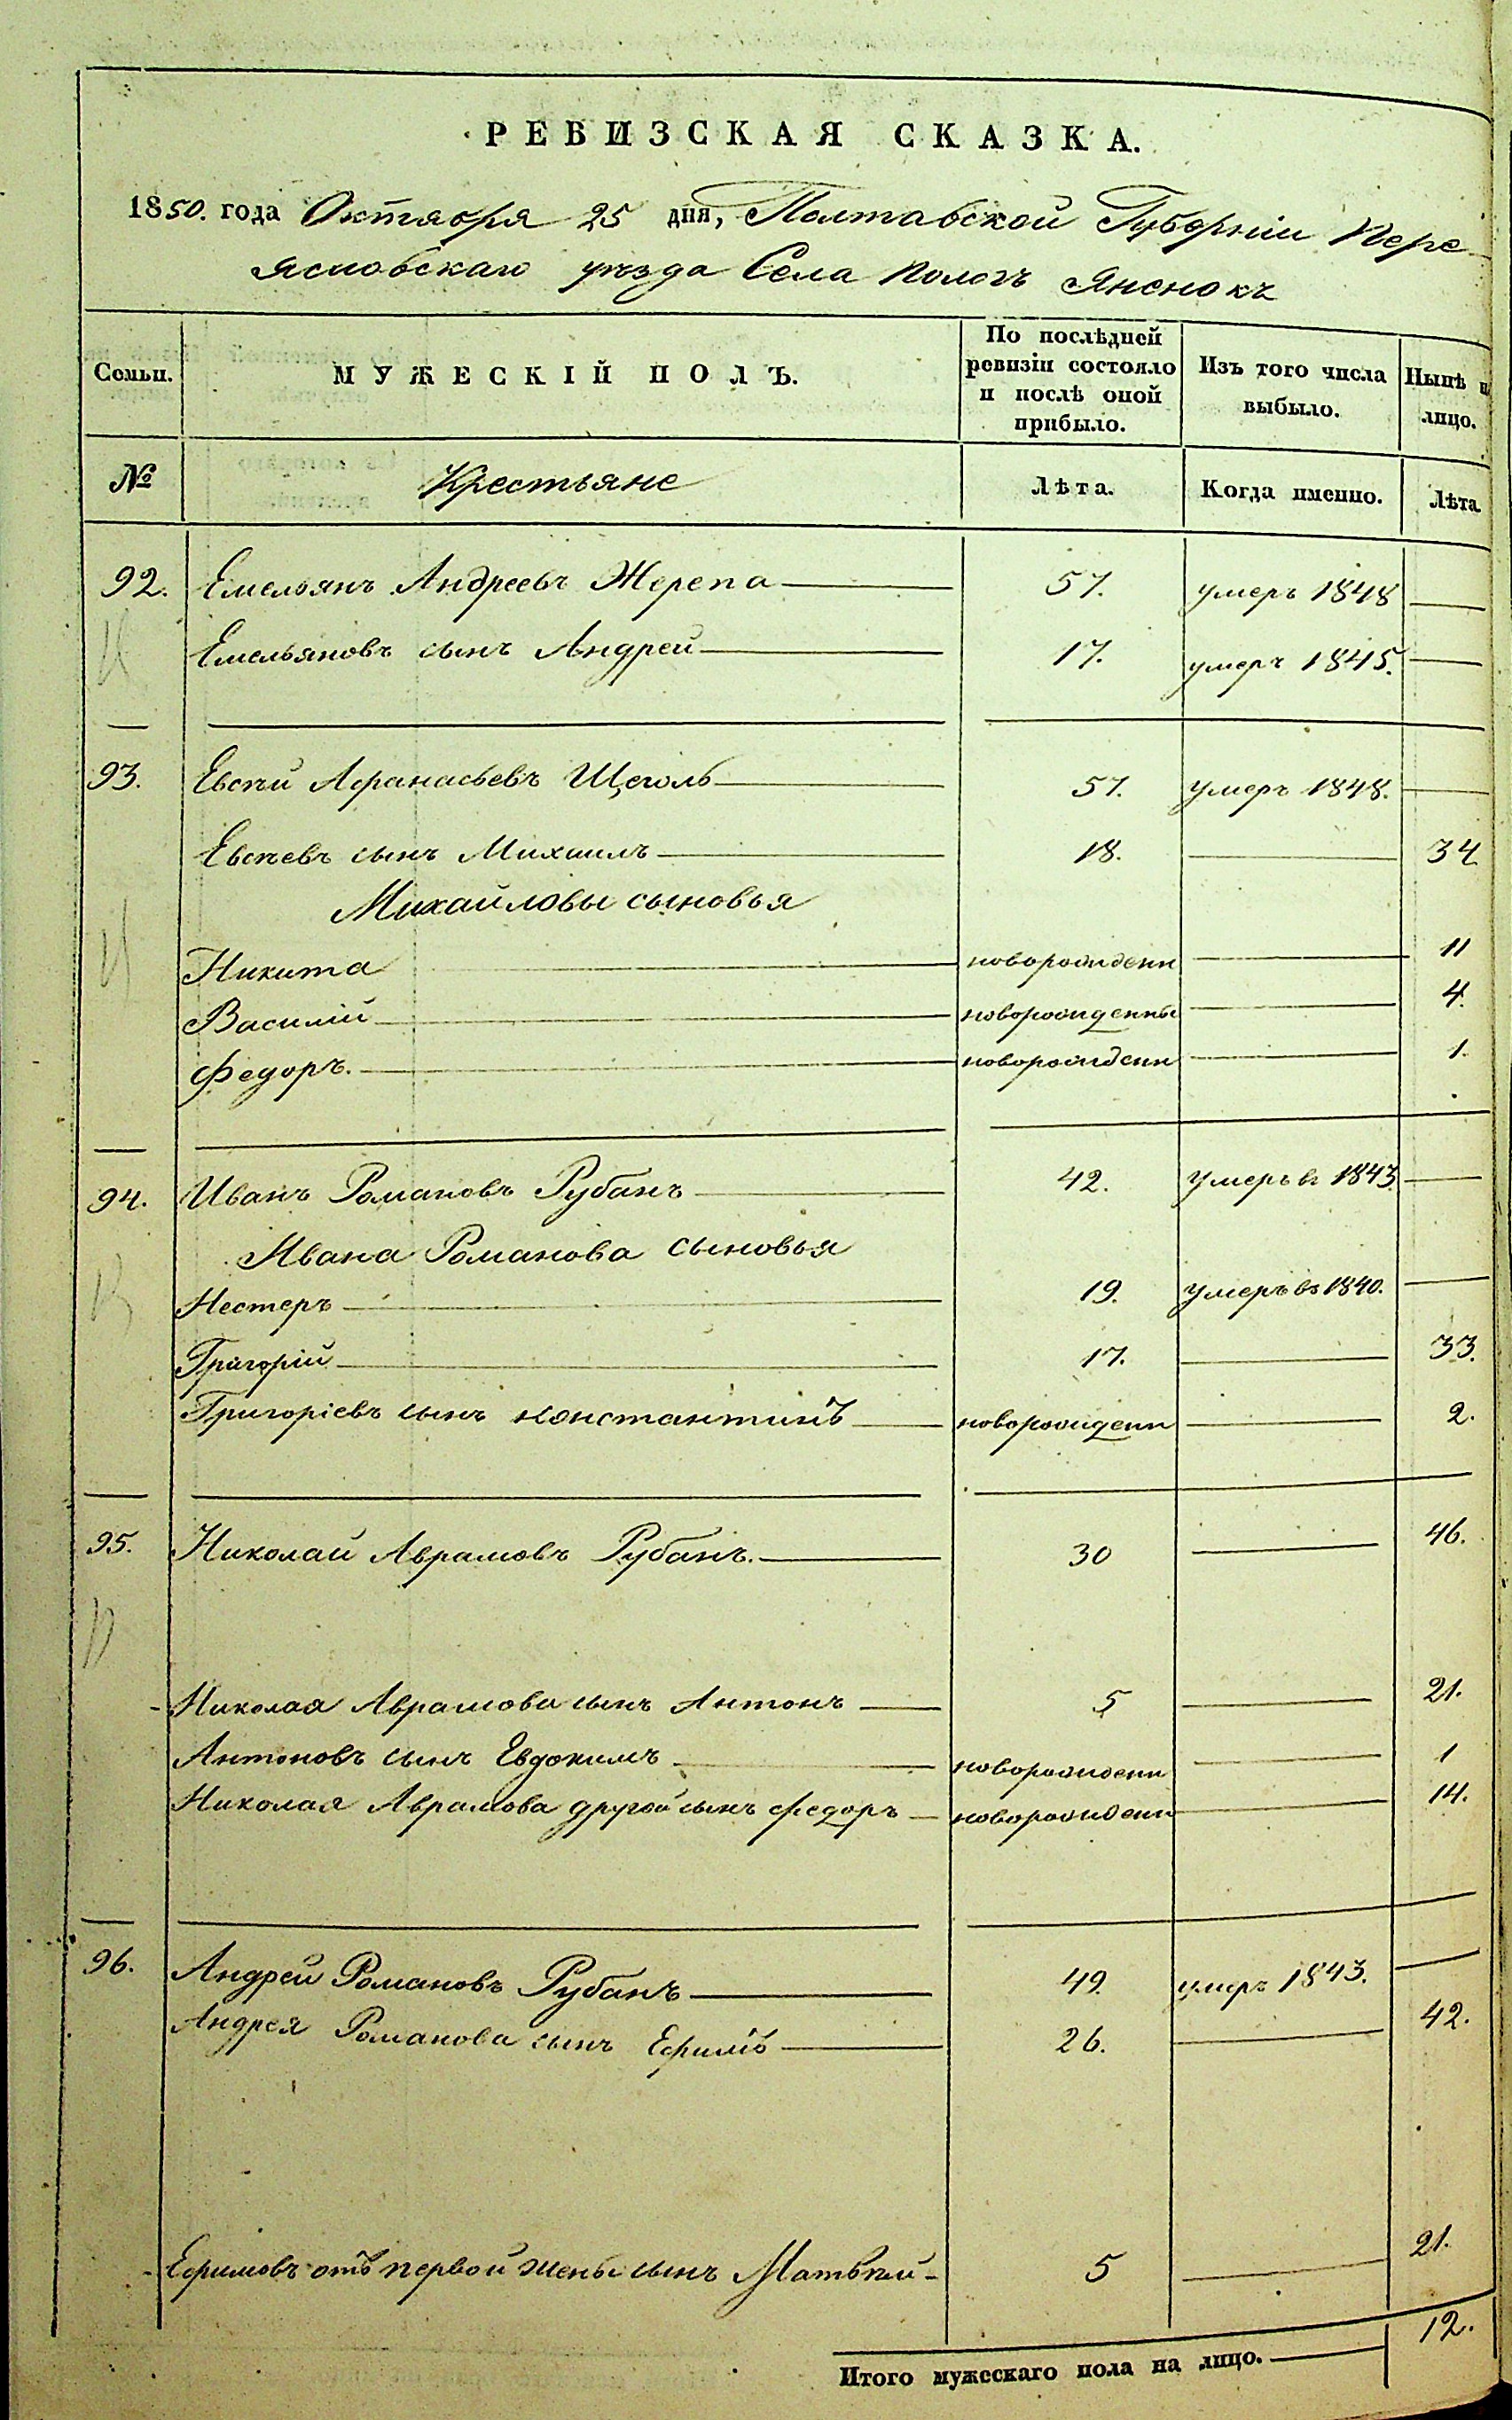 РЕВИЗСКАЯ СКАЗКА.
1850. года Октября 25 дня, Полтавской Губерніи Пере-
яславскаго уѣзда Села Пологъ Яненокъ
Семьи. МУЖЕСКІЙ ПОЛЪ. По послѣдней ревизіи состояло и послѣ оной прибыло. Изъ того числа выбыло. Нынѣ н лицо.
№ Крестьяне Лѣта. Когда именно. Лѣта
92. Емельянъ Андреевъ Жерепа 57. умеръ 1848
Емельяновъ сынъ Андрей 17. умеръ 1845.
93. Евсѣй Афанасьевъ Щеголь 57. умеръ 1848.
Евсѣевъ сынъ Михаилъ 18. 34
Михайловы сыновья
Никита новорожденн 11
Василій новорожденны 4.
Федоръ. новорожденн 1.
94. Иванъ Романовъ Рубанъ 42. умеръ въ 1843
Ивана Романова сыновья
Нестеръ 19. умеръ въ 1840.
Григорій 17. 33.
Григоріевъ сынъ Константинъ новорожденн 2.
95. Николай Аврамовъ Рубанъ. 30 46.
Николая Аврамова сынъ Антонъ 5 21.
Антоновъ сынъ Евдокимъ новорожденн 1
Николая Аврамова другой сынъ Федоръ новорожденн 14.
96. Андрей Романовъ Рубанъ 49. умеръ 1843.
Андрея Романова сынъ Ефимъ 26. 42.
Ефимовъ отъ первой жены сынъ Матвѣй 5 21.
Итого мужескаго пола на лицо. 12.